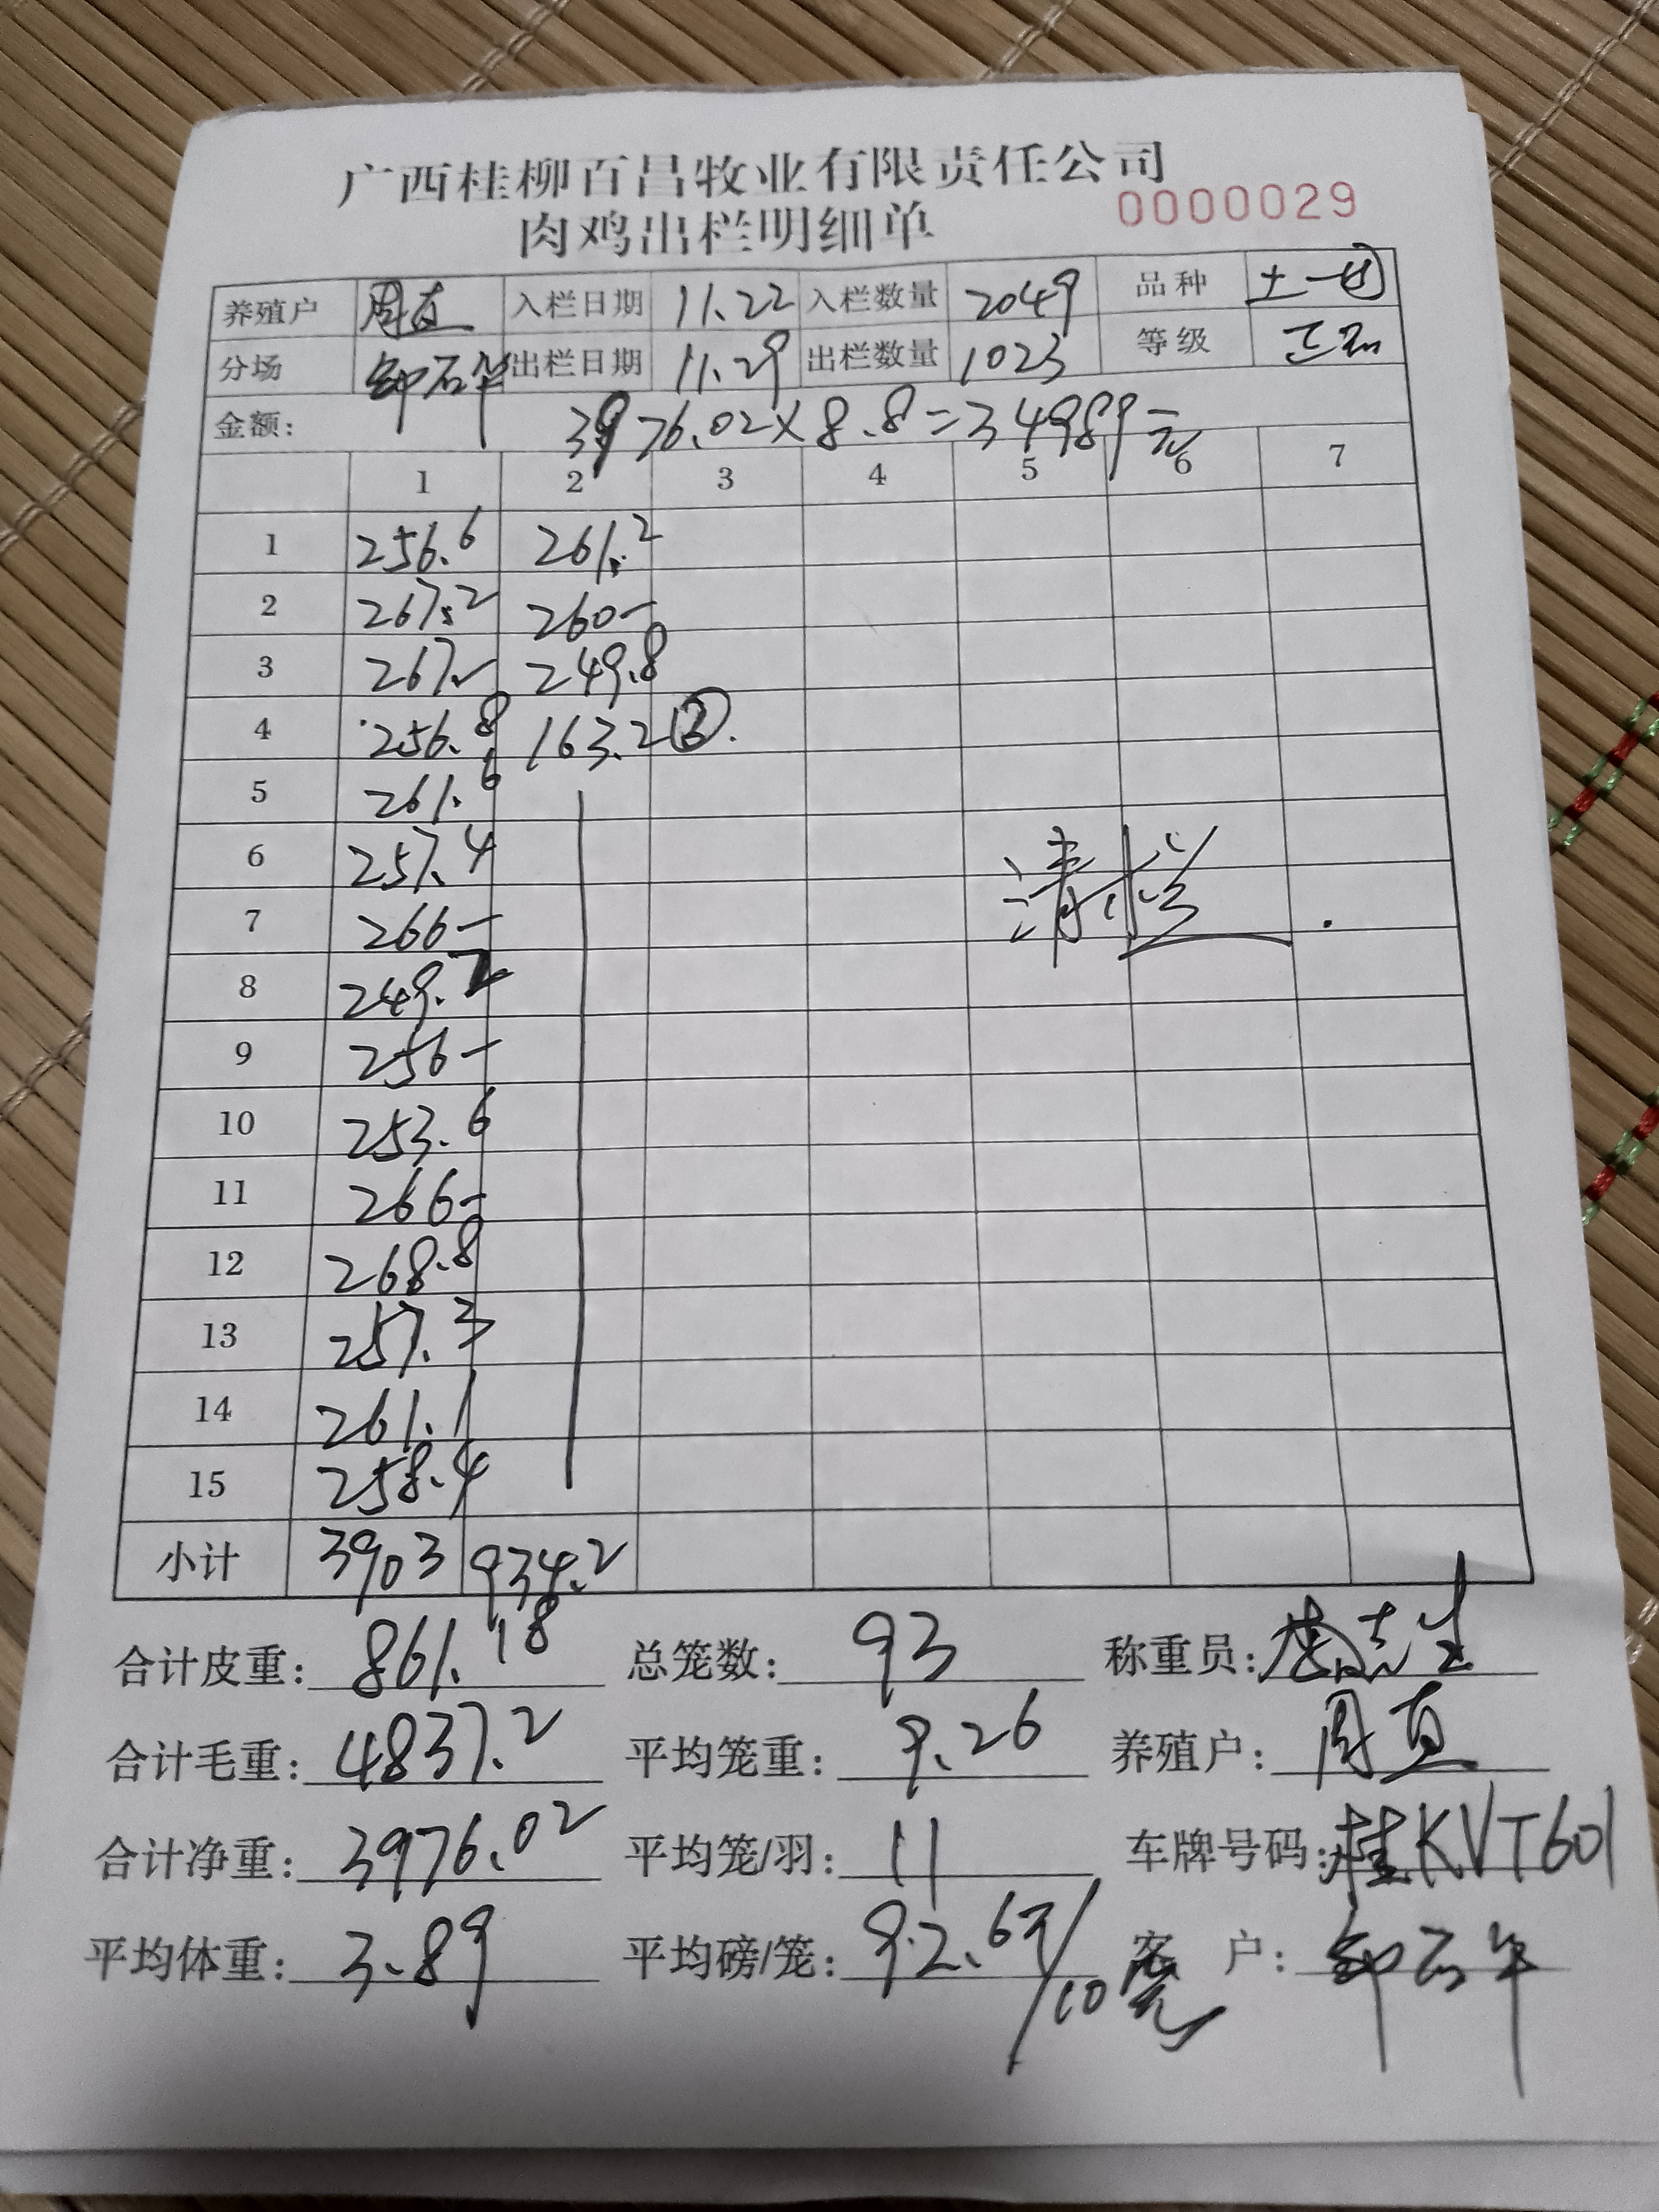 广西桂柳百昌牧业有限责任公司
肉鸡出栏明细单 0000029
养殖户 周直 入栏日期 11.22 入栏数量 2049 品种 土一
分场 出栏日期 11.29 出栏数量 1023 等级 正
金额: 3976.02×8.8=34989元
1 2 3 4 5 6 7
1 256.6 261.2
2 267.2 260-
3 267.- 249.8
4 256.8 163.2
5 261.6
6 257.4
7 266-
8 249.2
9 256-
10 253.6
11 266-
12 268.8
13 257.3
14 261.1
15 258.4
清栏
小计 3903 934.2
合计皮重: 861.18 总笼数: 93 称重员:
合计毛重: 4837.2 平均笼重: 9.26 养殖户: 周直
合计净重: 3976.02 平均笼/羽: 11 车牌号码: 桂KVT601
平均体重: 3.89 平均磅/笼: 92.6 /10 客户: